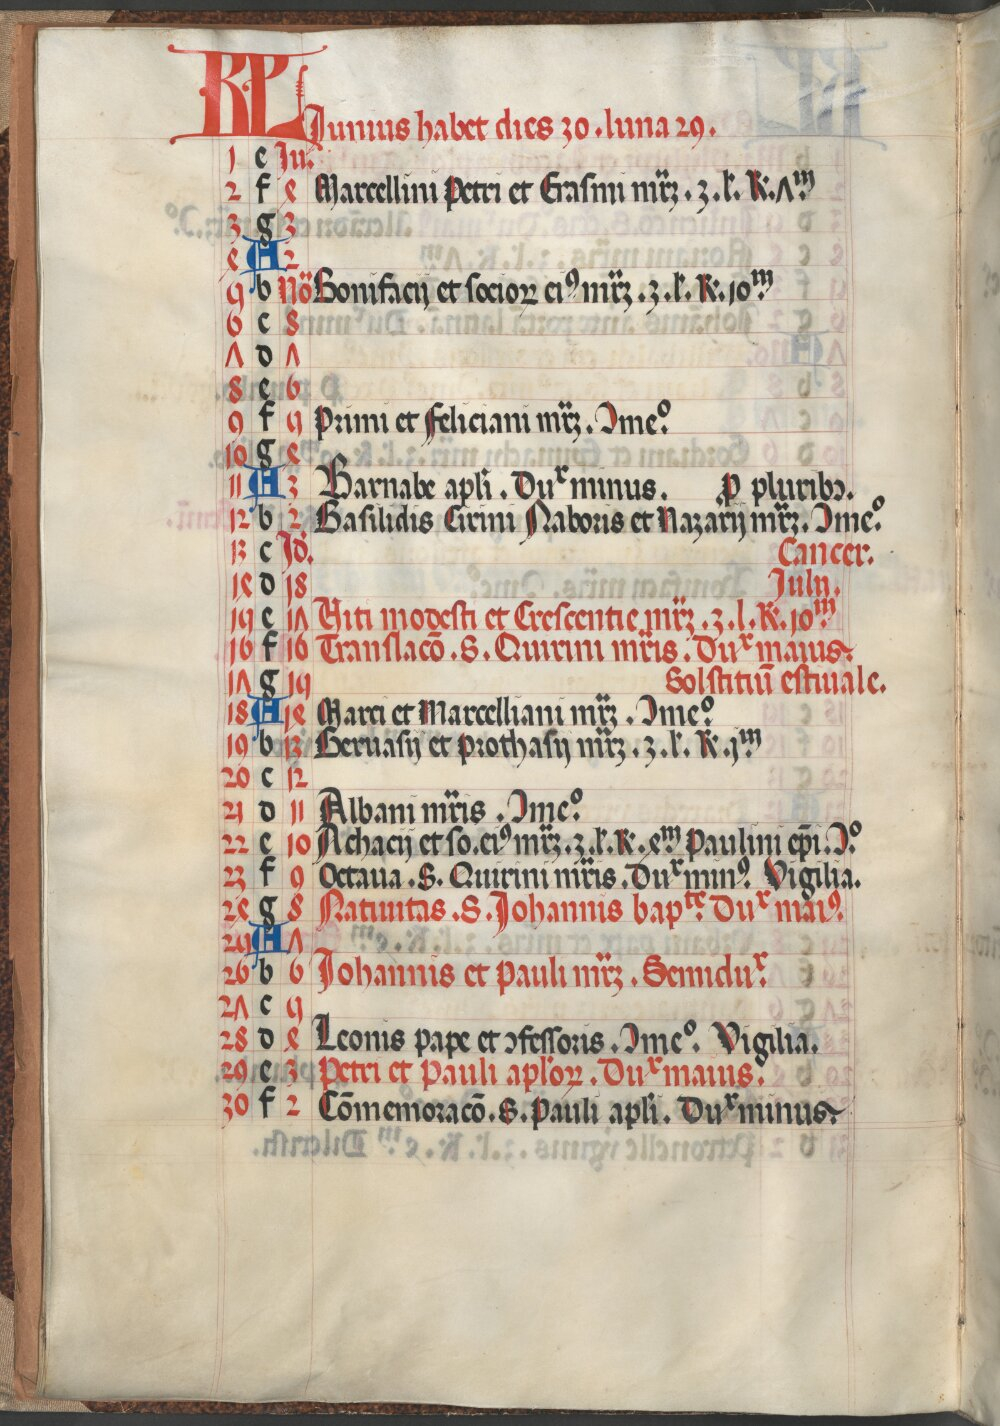 KL Junius habet dies 30. luna 29.
1 e Ju.
2 f 4 Marcellini Petri et Erasmi mr̄ꝫ. 3. l'. K. 7m
3 g 3
4 A 2
5 b No Bonifacij et socioꝝ eiꝰ mr̄ꝫ. 3. l'. K. 10m
6 c 8
7 d 7
8 e 6
9 f 5 Primi et Feliciani mr̄ꝫ. Ime°.
10 g 4
11 A 3 Barnabe apl'i. Dux minus. ꝓ pluribꝫ.
12 b 2 Basilidis Cirini Naboris et Nazarij mr̄ꝫ. Ime°.
13 c Jd. Cancer.
14 d 18 Julij.
15 e 17 Viti modesti et Crescentie mr̄ꝫ. 3. l. K. 10m
16 f 16 Translacō. S. Quirini mr̄is. Dux maius.
17 g 15 Solstitiū estiuale.
18 A 14 Marci et Marcelliani mr̄ꝫ. Ime°.
19 b 13 Geruasij et prothasij mr̄ꝫ. 3. l'. K. 1m
20 c 12
21 d 11 Albani mr̄is. Ime°.
22 e 10 Achacij et so. eiꝰ mr̄ꝫ. 3. l'. K. 4m Paulini ep̄i. I°.
23 f 9 Octaua. S. Quirini mr̄is. Dux minꝰ. Vigilia.
24 g 8 Natiuitas. S. Johannis bapte. Dux maiꝰ.
25 A 7
26 b 6 Johannis et pauli mr̄ꝫ. Semidux.
27 c 5
28 d 4 Leonis pape et ꝯfessoris. Ime°. Vigilia.
29 e 3 Petri et Pauli apl'oꝝ. Dux maius.
30 f 2 Cōmemoracō. S. Pauli apl'i. Dux minus.